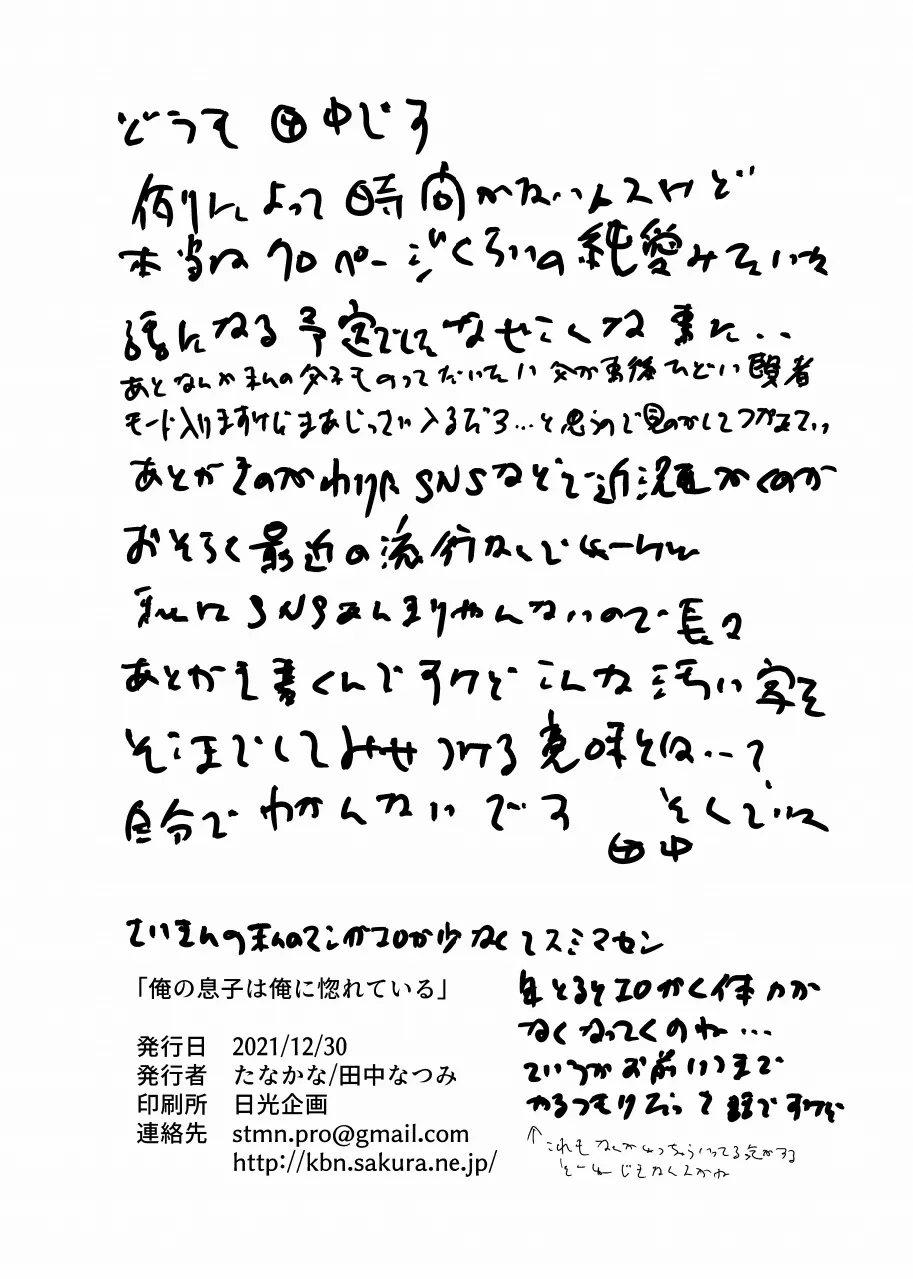 どうも 田中です
例によって時間がないんスけど
本当は70ページくらいの純愛みたいな
話になる予定でしてなぜこんな事に..
あとなんか私の父子ものってだいたい父が事後ひどい賢者
モード入りますけどまあじっさい入るだろ…と思うので見のがしてつかぁさい
あとがきのかわりに SNSなどで近況かくのが
おそらく最近の流行なんでしょうけど
私は SNSあんまりやんないので長々
あとがきを書くんですけど こんな汚い字を
そこまでしてみせつける意味とは…?
自分でわかんないです
田中
さいきんの私のマンガエロが少なくてスミマセン
年とるとエロかく体力が
なくなってくのね…
ていうかお前いつまで
やるつもりだって話ですけど
↑これもなんかめっちゃ言ってる気がする
「俺の息子は俺に惚れている」
発行日 2021/12/30
発行者 たなかな/田中なつみ
印刷所 日光企画
連絡先 stmn.pro@gmail.com
http://kbn.sakura.ne.jp/